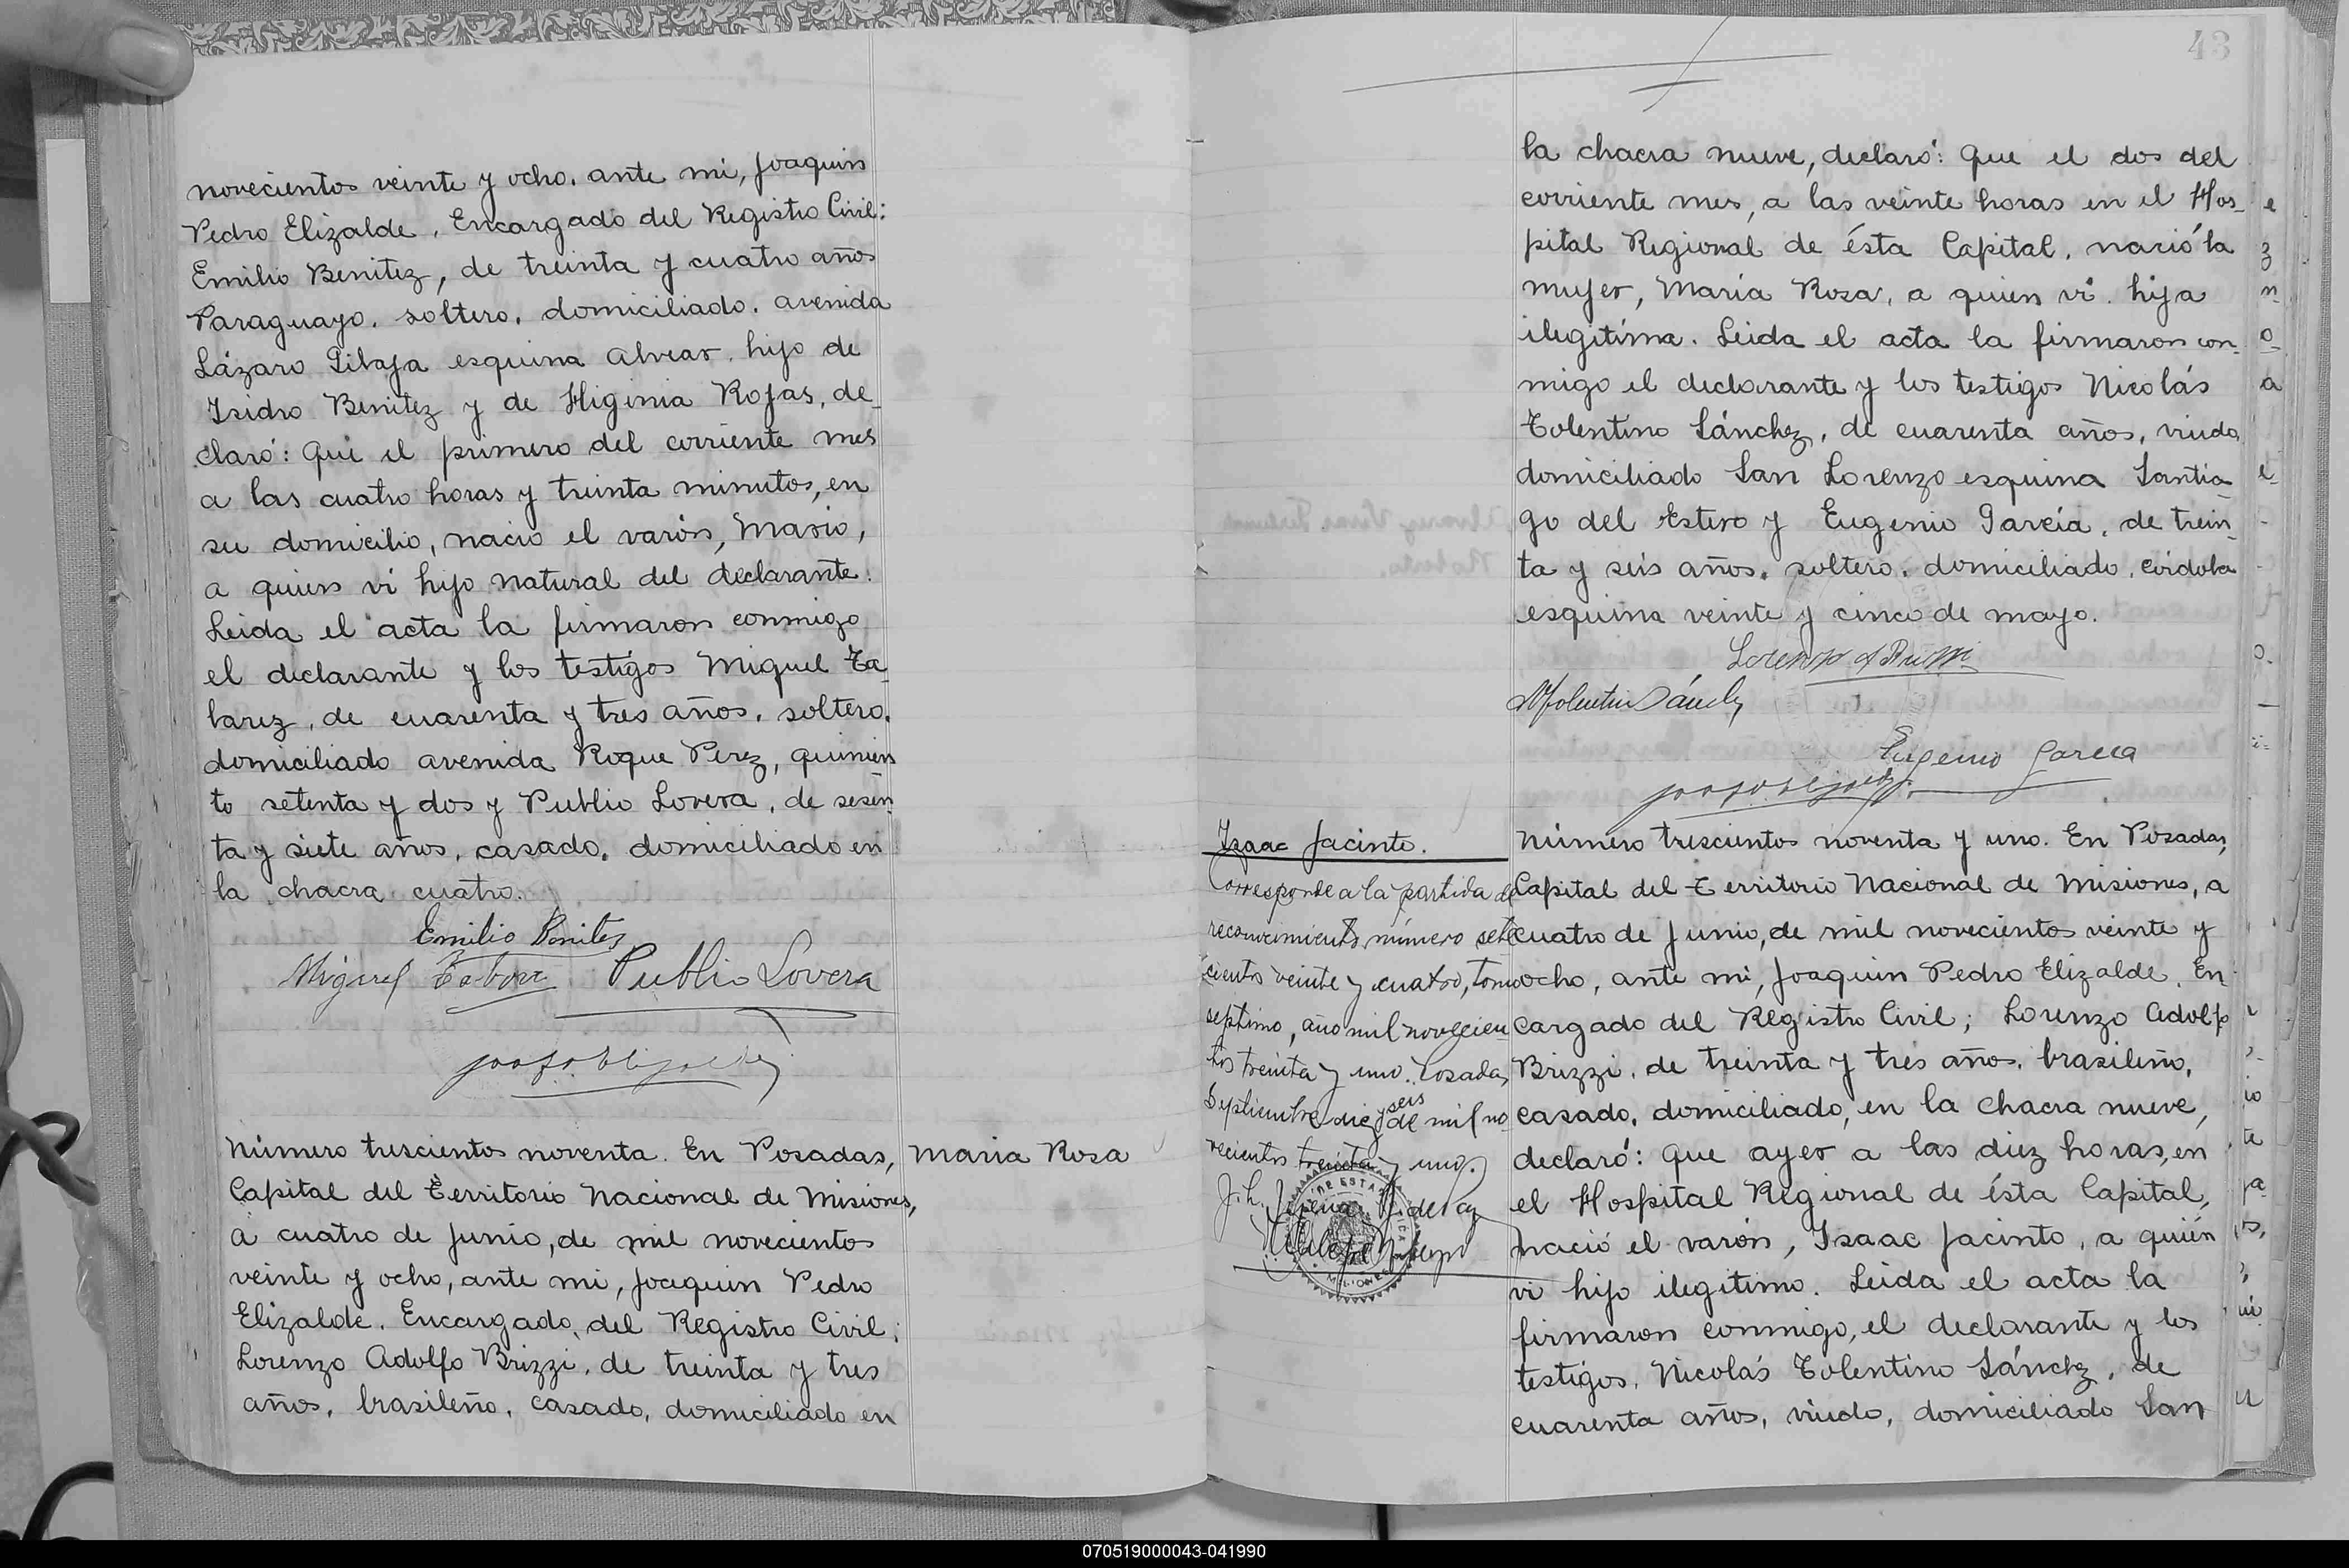 novecientos veinte y ocho. ante mi, Joaquin
Pedro Elizalde, Encargado del Registro Civil:
Emilio Benitez, de treinta y cuatro años
Paraguayo. soltero. domiciliado. avenida
Lázaro Gibaja esquina Alvear. hijo de
Isidro Benitez y de Higinia Rojas, de_
claró: Que el primero del corriente mes
a las cuatro horas y treinta minutos, en
su domicilio, nació el varón, Mario,
a quien vi hijo natural del declarante.
Leida el acta la firmaron conmigo
el declarante y los testigos Miguel Ta_
barez, de cuarenta y tres años. soltero.
domiciliado avenida Roque Perez, quinien_
to setenta y dos y Publio Lovera, de sesen_
ta y siete años, casado. domiciliado en
la chacra cuatro.
Emilio Benites
Miguel Tabore Publio Lovera
Número trescientos noventa. En Posadas,
Capital del Territorio Nacional de Misiones,
a cuatro de Junio, de mil novecientos
veinte y ocho, ante mi, Joaquin Pedro
Elizalde. Encargado, del Registro Civil;
Lorenzo Adolfo Brizzi, de treinta y tres
años, brasileño, casado, domiciliado en
Maria Rosa
43
la chacra nueve, declaró: Que el dos del
corriente mes, a las veinte horas en el Hos_
pital Regional de ésta Capital, nació la
mujer, María Rosa, a quien vi. hija
ilegitima. Leida el acta la firmaron con_
migo el declarante y los testigos Nicolás
Tolentino Sánchez, de cuarenta años, viudo,
domiciliado San Lorenzo esquina Santia_
go del Estero y Eugenio García, de trein_
ta y seis años. soltero. domiciliado, córdoba
esquina veinte y cinco de mayo.
Lorenzo A Brizzi
NTolentin Sánch
Eugenio Garcia
Isaac Jacinto.
Corresponde a la partida de
reconocimiento número sete
cientos veinte y cuatro, tomo
septimo, año mil novecien
tos treinta y uno. Posadas
Septiembre diez y seis de mil no
vecientos treinta y uno.
Número trescientos noventa y uno. En Posadas,
Capital del Territorio Nacional de Misiones, a
cuatro de Junio, de mil novecientos veinte y
ocho, ante mi, Joaquin Pedro Elizalde. En_
cargado del Registro Civil; Lorenzo Adolfo
Brizzi, de treinta y tres años, brasileño,
casado, domiciliado, en la chacra nueve,
declaró: Que ayer a las diez horas, en
el Hospital Regional de ésta Capital,
nació el varón, Isaac Jacinto, a quién
vi hijo ilegitimo. Leida el acta la
firmaron conmigo, el declarante y los
testigos, Nicolás Tolentino Sánchz, de
cuarenta años, viudo, domiciliado San
070519000043-041990